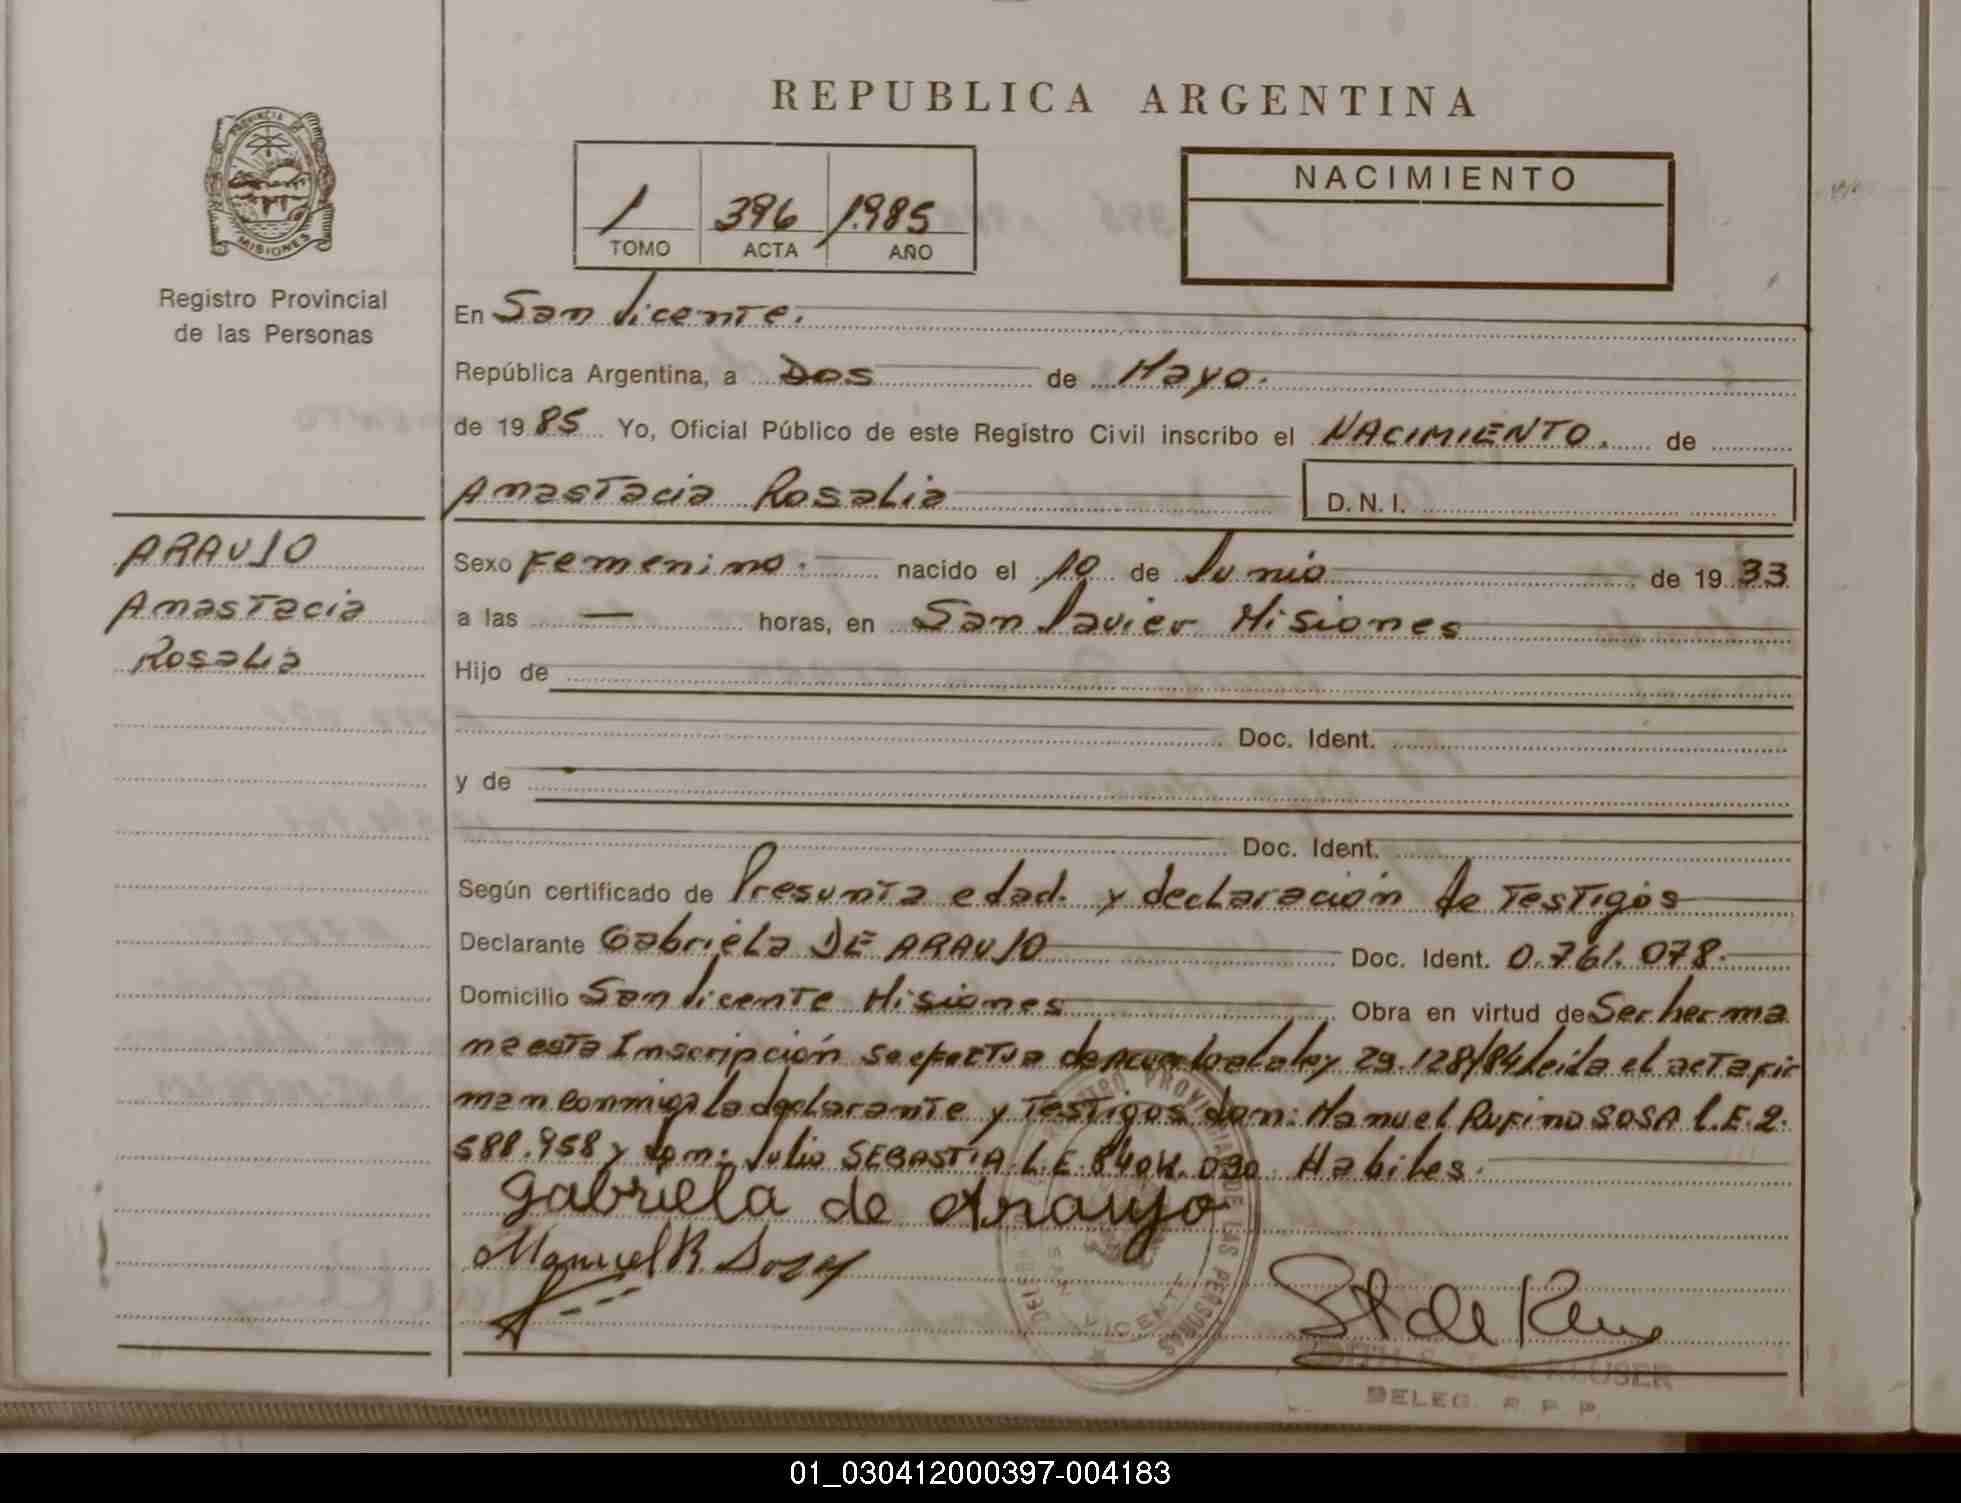 REPUBLICA ARGENTINA
PROVINCIA DE
MISIONES
Registro Provincial
de las Personas
1 396 1.985
TOMO ACTA AÑO
NACIMIENTO
En San Vicente.
República Argentina, a Dos de Mayo.
de 19 85 Yo, Oficial Público de este Registro Civil inscribo el NACIMIENTO. de
Anastacia Rosalia D. N. I.
ARAUJO
Anastacia
Rosalia
Sexo Femenino. nacido el 10 de Junio de 19 33
a las — horas, en San Javier Misiones
Hijo de
Doc. Ident.
y de
Doc. Ident.
Según certificado de Presunta edad. y declaración de Testigos
Declarante Gabriela DE ARAUJO Doc. Ident. 0.761.078.
Domicilio San Vicente Misiones Obra en virtud de Ser herma
na esta Inscripción se efectua de acuerdo a la ley 29.128/84 leida el acta fir
man conmigo la declarante y Testigos don: Manuel Rufino SOSA L.E.2.
588.958 y don: Julio SEBASTIA L.E. 030 Habiles.
Gabriela de Araujo
Manuel R. Sosa
REGISTRO PROVINCIAL DE LAS PERSONAS
SAN VICENTE
DELEG. R. P. P.
01_030412000397-004183